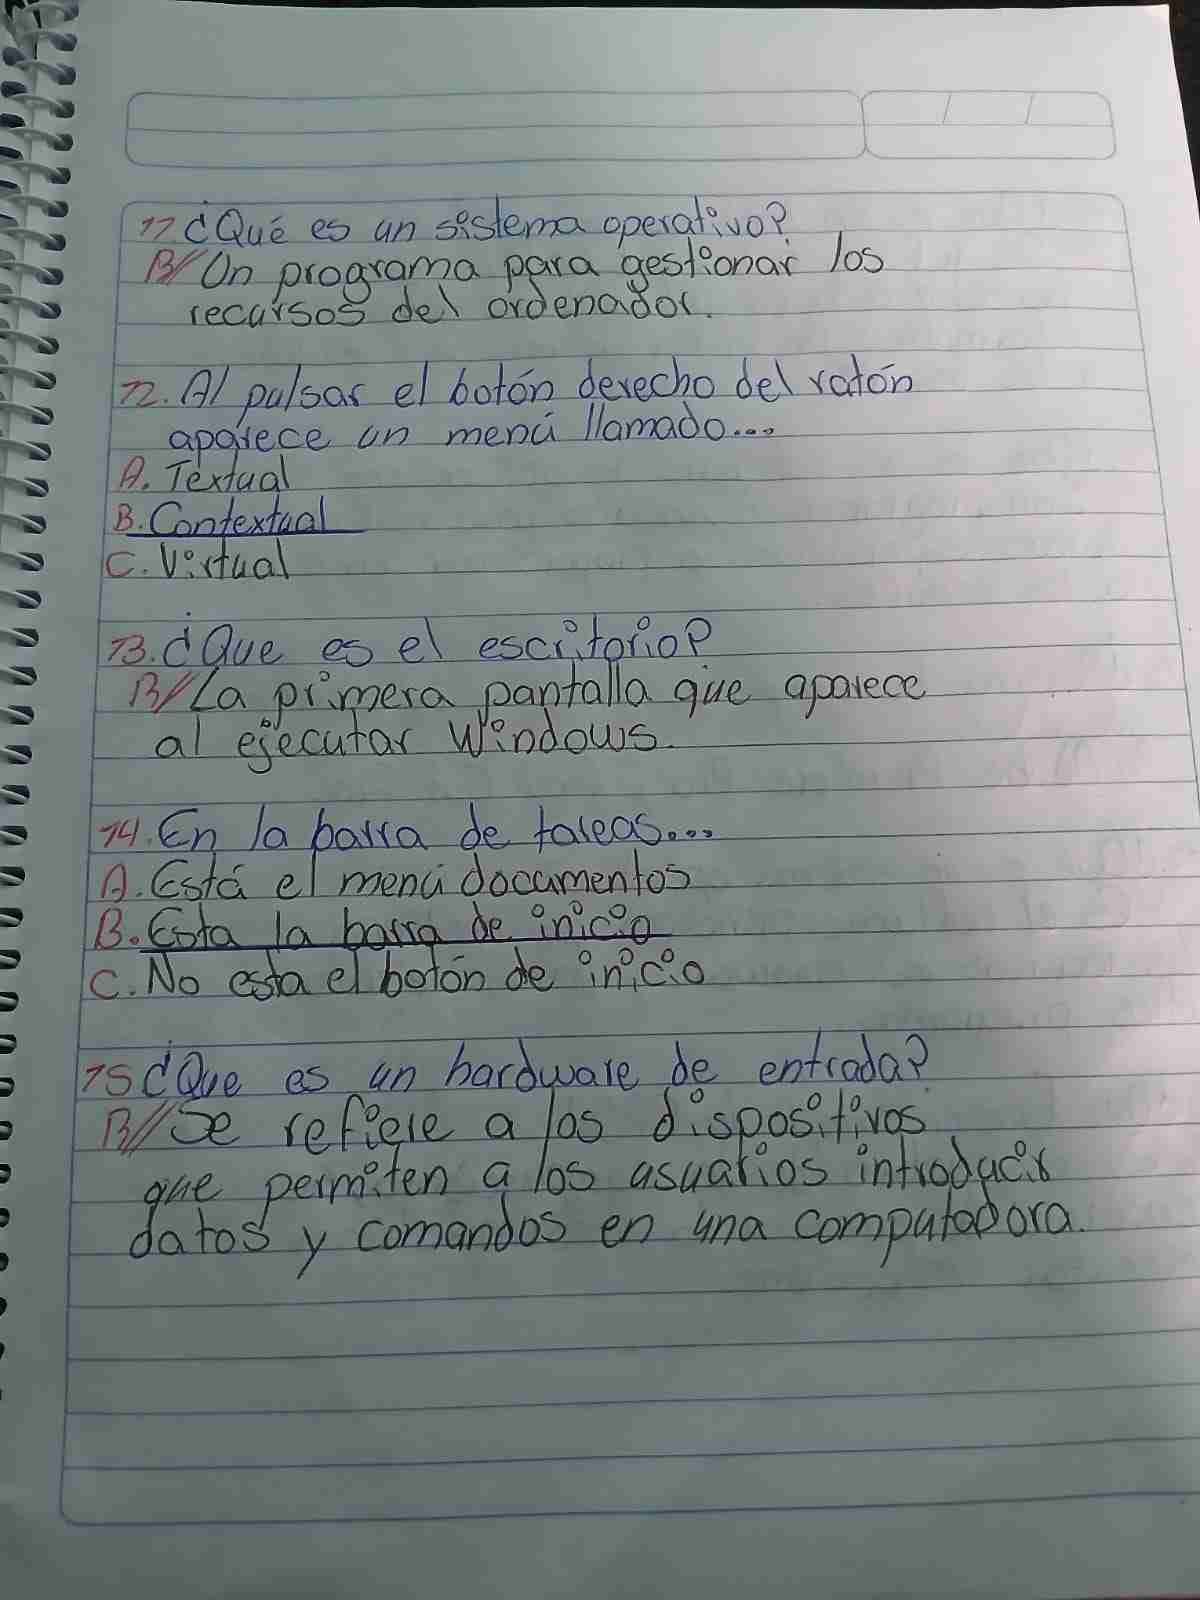 11 ¿Qué es un sistema operativo?
R// Un programa para gestionar los
recursos del ordenador.
12. Al pulsar el botón derecho del ratón
aparece un menú llamado...
A. Textual
B. Contextual
C. Virtual
13. ¿Que es el escritorio?
R// La primera pantalla que aparece
al ejecutar Windows.
14. En la barra de tareas...
A. Está el menú documentos
B. Esta la barra de inicio
C. No esta el botón de inicio
15 ¿Que es un hardware de entrada?
R// Se refiere a los dispositivos
que permiten a los usuarios introducir
datos y comandos en una computadora.